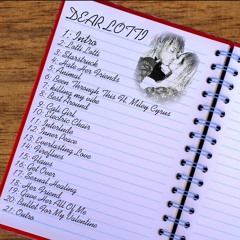 DEAR LOTTI
1. Intro
2. Lotti Lotti
3. Starstruck
4. Hate Her Friends
5. Animal
6. Been Through This Ft. Miley Cyrus
7. killing my vibe
8. Best Around
9. Call Girl
10. Electric Chair
11. Interlude
12. Inner Peace
13. Everlasting Love
14. Fireflies
15. Flaws
16. Get Over
17. Sexual Healing
18. Her Friend
19. Gave Her All Of Me
20. Bullet For My Valentine
21. Outro